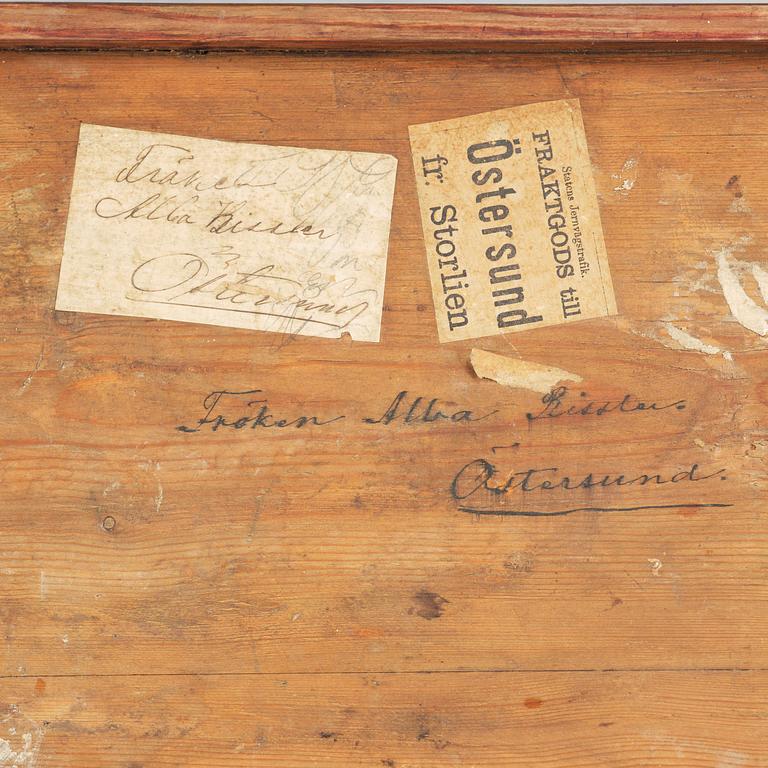 Fröken
Alba Rissler
Östersund
Statens Jernvägstrafik.
FRAKTGODS till
Östersund
fr. Storlien
Fröken Alba Rissler.
Östersund.